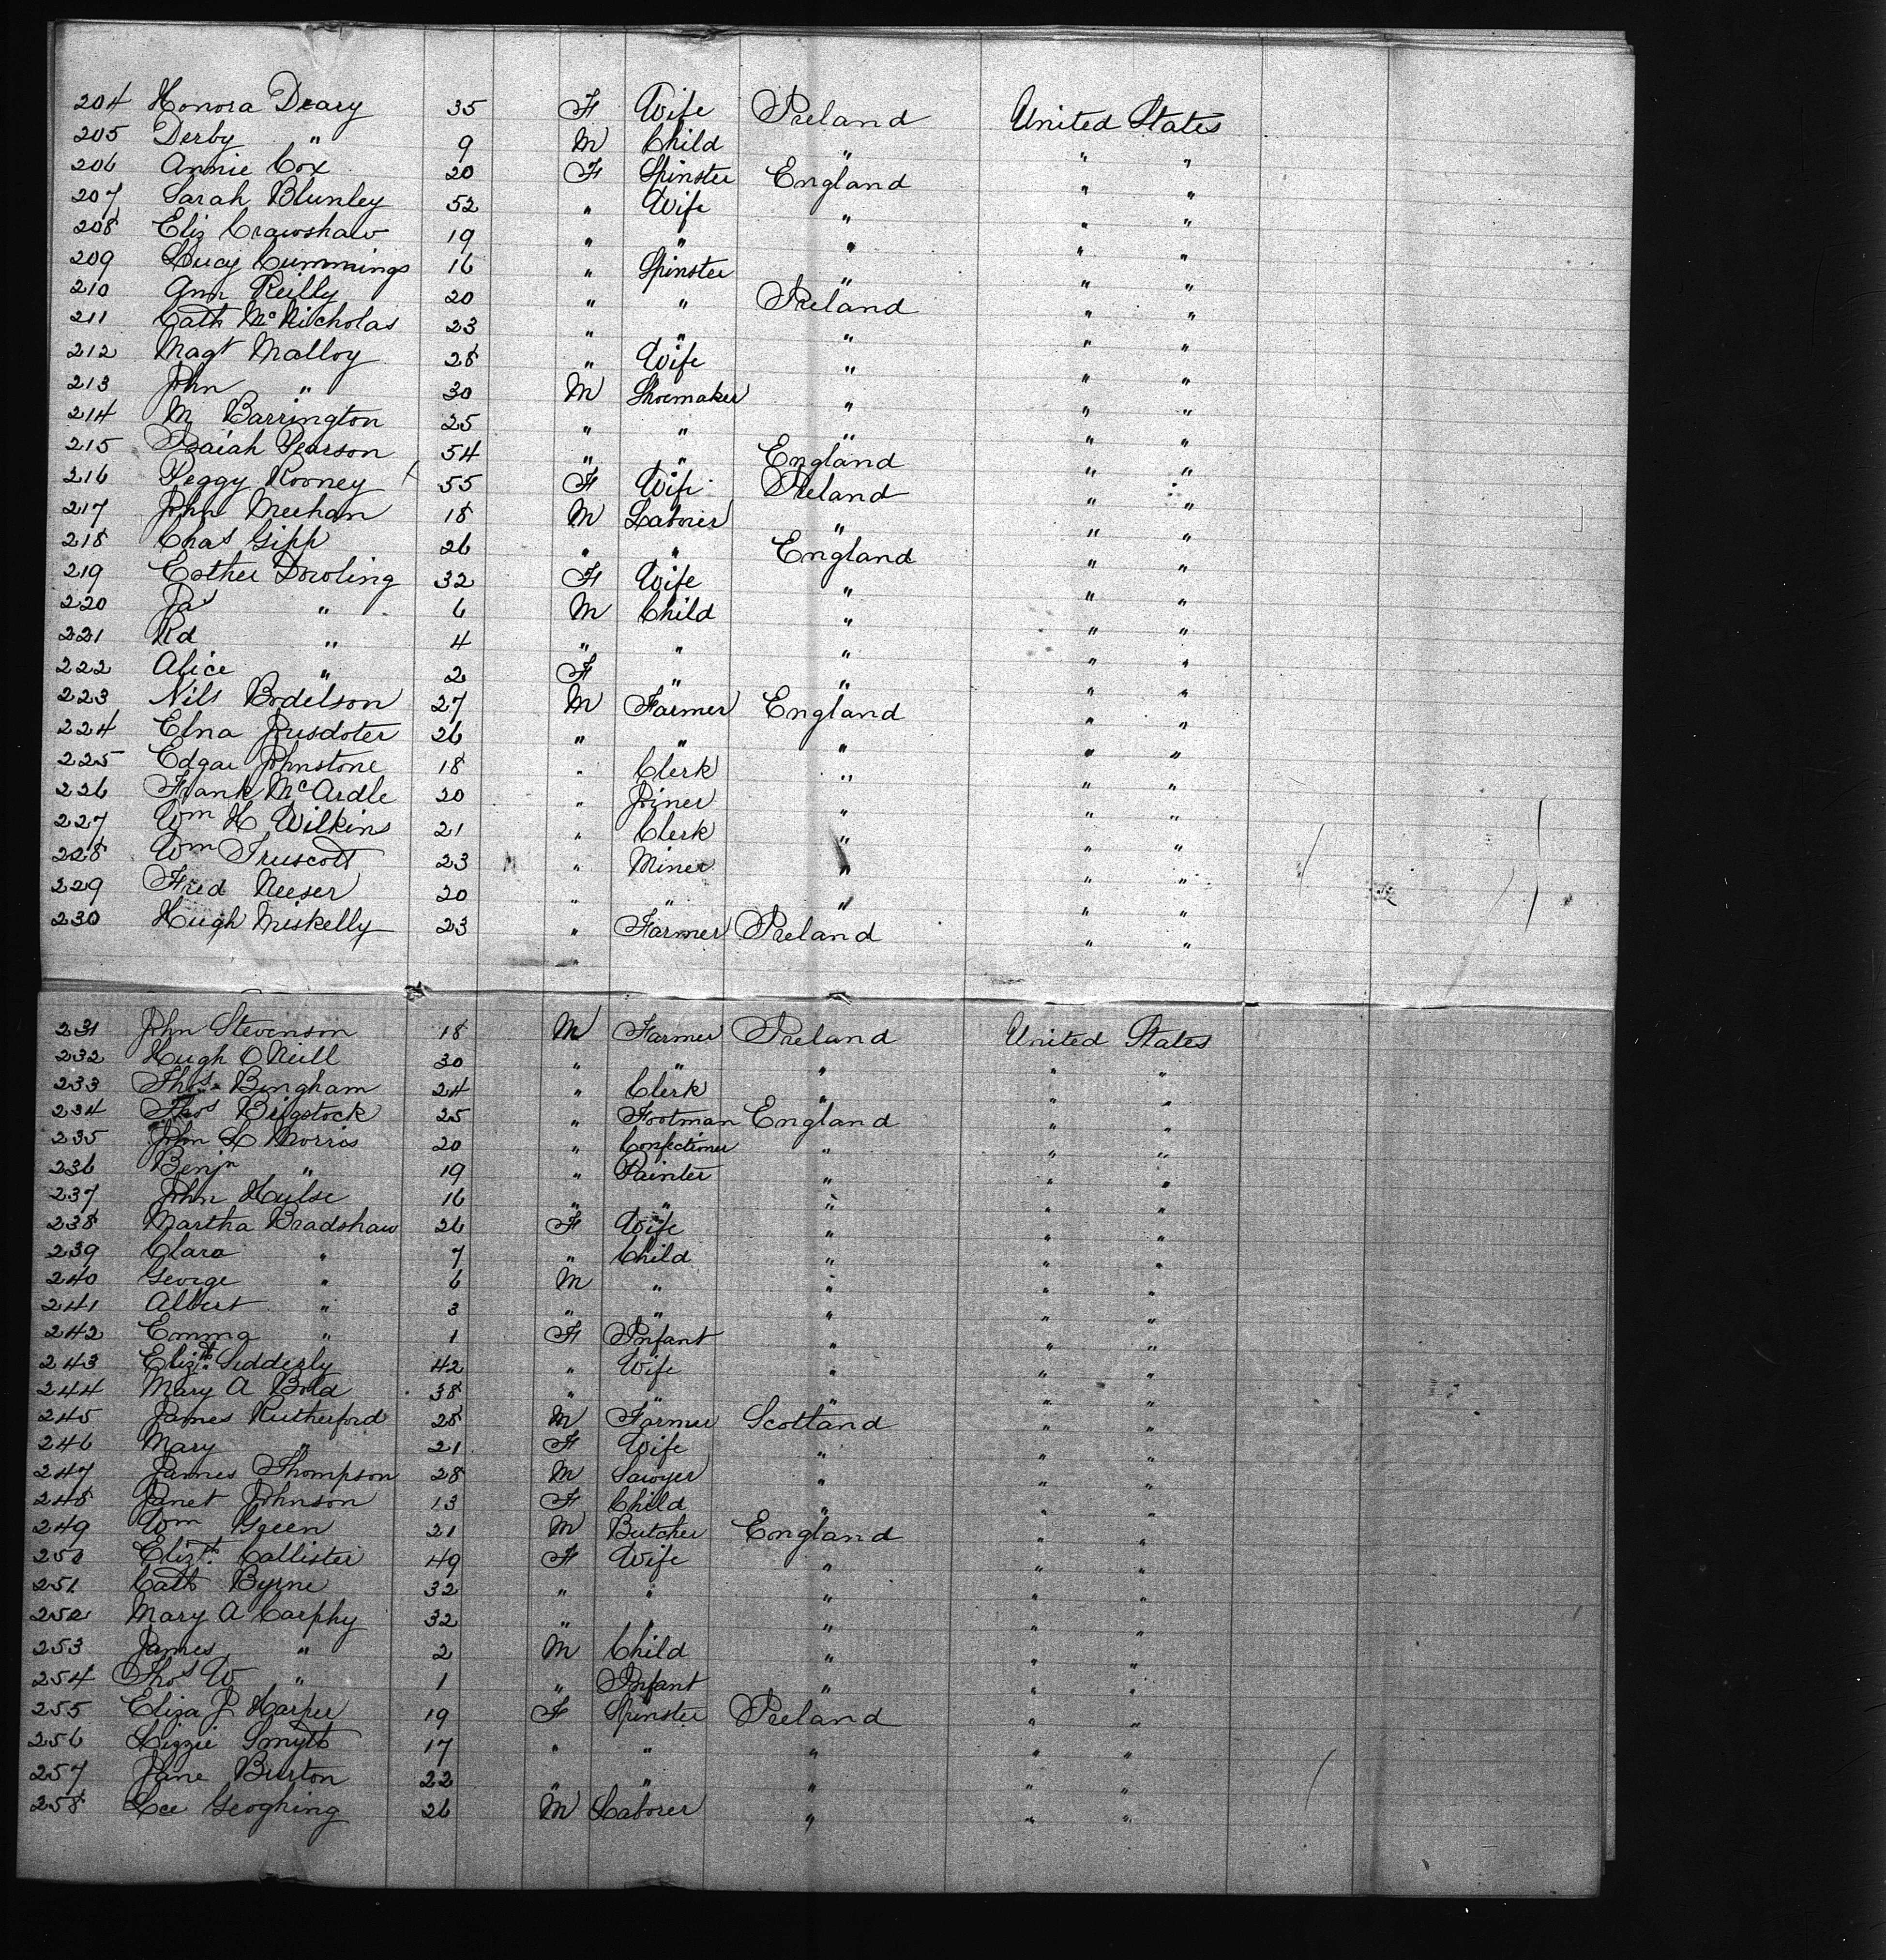 204 Honora Deary 35 F Wife Ireland United States
205 Derby " 9 M Child " " "
206 Annie Cox 20 F Spinster England " "
207 Sarah Blunley 52 " Wife " " "
208 Eliz Crawshaw 19 " " " " "
209 Lucy Cummings 16 " Spinster " " "
210 Ann Reilly 20 " " Ireland " "
211 Cath McNicholas 23 " " " " "
212 Magt Malloy 28 " Wife " " "
213 John " 30 M Shoemaker " " "
214 M Barrington 25 " " " " "
215 Isaiah Pearson 54 " " England " "
216 Peggy Rooney 55 F Wife Ireland " "
217 John Meehan 18 M Laborer " " "
218 Chas Gipp 26 " " England " "
219 Esther Dowling 32 F Wife " " "
220 Jas " 6 M Child " " "
221 Rd " 4 " " " " "
222 Alice " 2 F " " " "
223 Nils Bodelson 27 M Farmer England " "
224 Elna Jrisdoter 26 " " " " "
225 Edgar Johnstone 18 " Clerk " " "
226 Frank McArdle 20 " Joiner " " "
227 Wm H Wilkins 21 " Clerk " " "
228 Wm Truscott 23 " Miner " " "
229 Fred Neeser 20 " " " " "
230 Hugh Miskelly 23 " Farmer Ireland " "
"
231 John Stevenson 18 M Farmer Ireland United States
232 Hugh O'Neill 30 " " " " "
233 Thos Bingham 24 " Clerk " " "
234 Thos Brigstock 25 " Footman England " "
235 John L Morris 20 " Confectioner " " "
236 Benjn " 19 " Painter " " "
237 John Hulse 16 " " " " "
238 Martha Bradshaw 26 F Wife " " "
239 Clara " 7 " Child " " "
240 George " 6 M " " " "
241 Albert " 3 " " " " "
242 Emma " 1 F Infant " " "
243 Elizth Sedderly 42 " Wife " " "
244 Mary A Bold 38 " " " " "
245 James Rutherford 28 M Farmer Scotland " "
246 Mary " 21 F Wife " " "
247 James Thompson 28 M Sawyer " " "
248 Janet Johnson 13 F Child " " "
249 Wm Green 21 M Butcher England " "
250 Elizth Callister 49 F Wife " " "
251 Cath Byrne 32 " " " " "
252 Mary A Carphy 32 " " " "
253 James " 2 M Child " " "
254 Thos W " 1 " Infant " " "
255 Eliza J Harper 19 F Spinster Ireland " "
256 Lizzie Smyth 17 " " " " "
257 Jane Burton 22 " " " " "
258 Lee Geoghing 26 M Laborer " " "